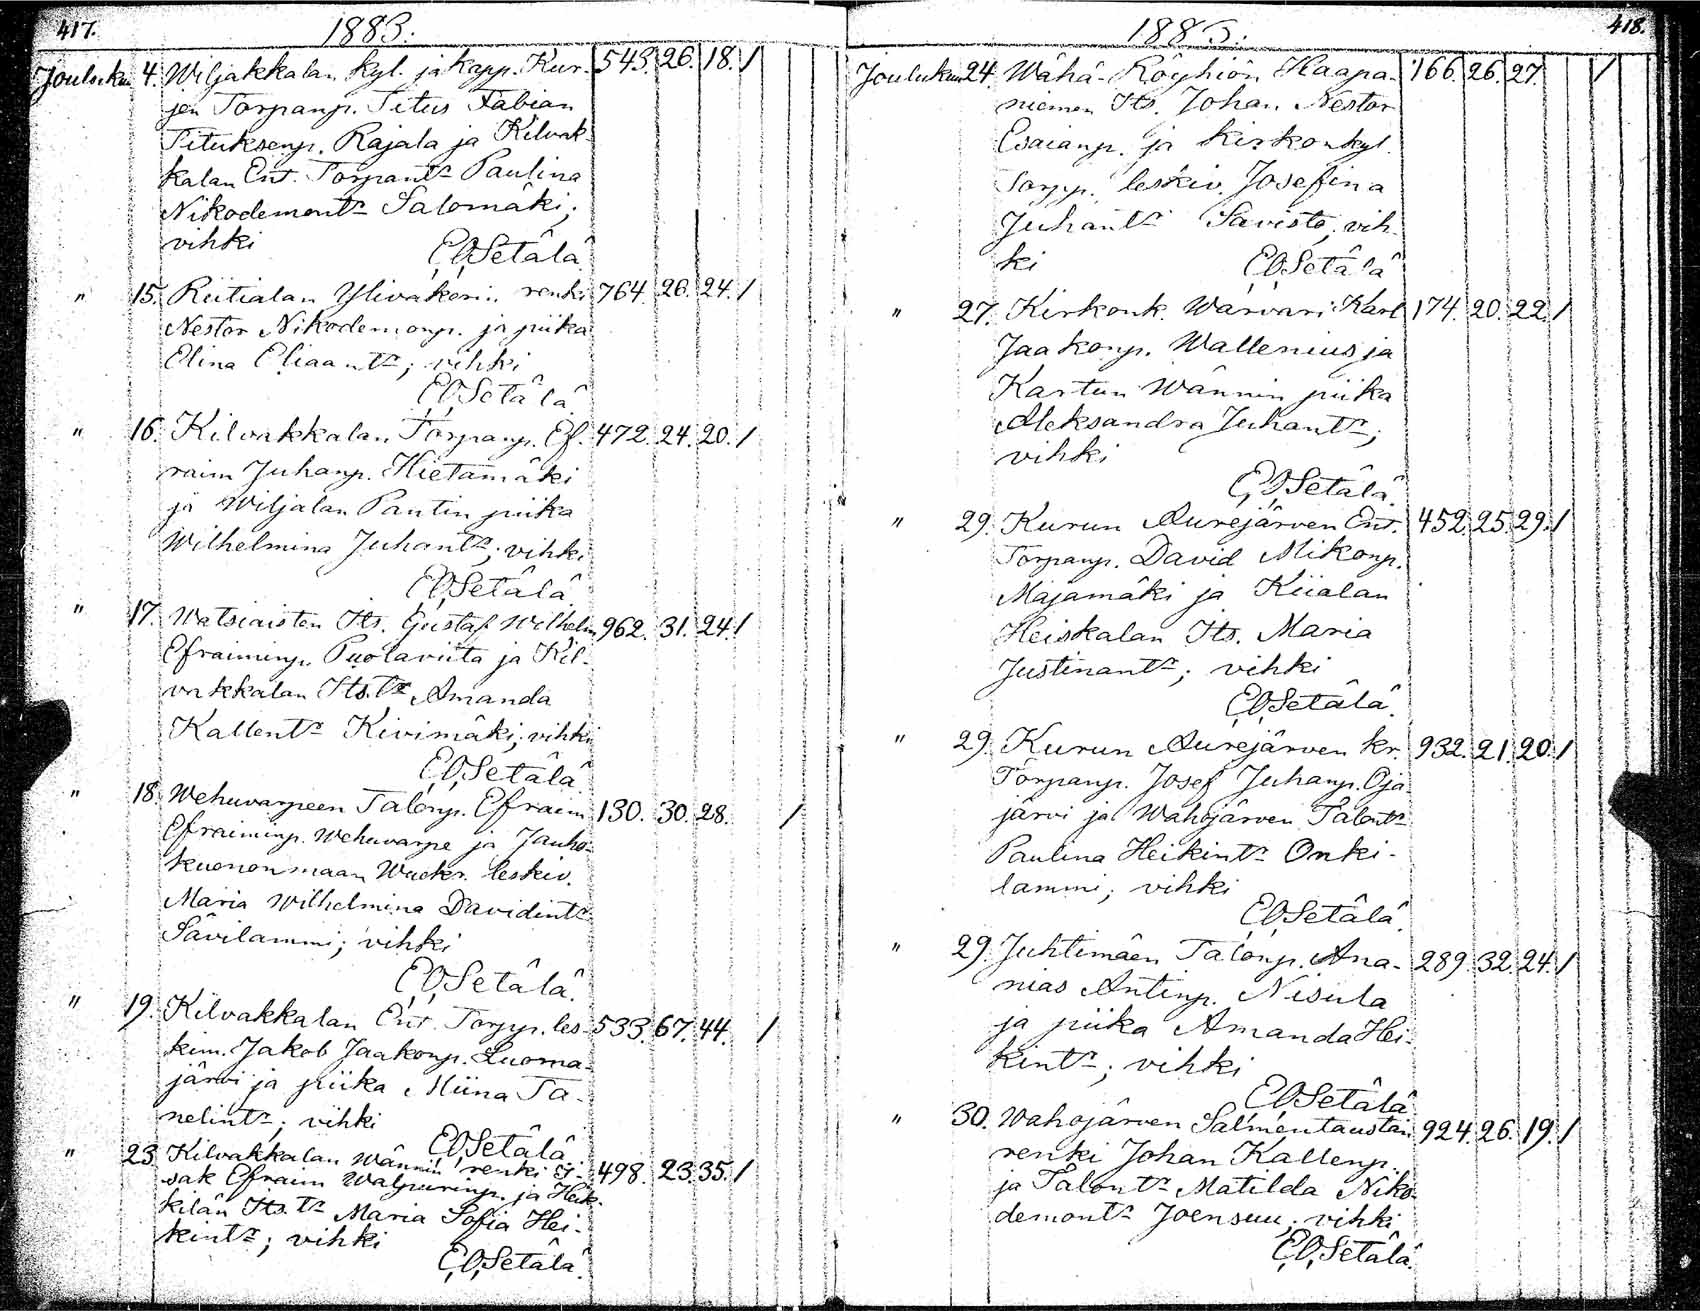 417.
1883.
Joulukuu 4. Wiljakkalan kyl. ja kapp. Kur- 543. 26. 18. /
jen Torpanp. Titus Fabian
Tituksenp. Rajala ja Kilvak-
kalan Ent. Torpantr Paulina
Nikodemontr Salomäki;
vihki
E, O, Setälä
" 15. Riitialan Ylivakeri renki 764. 26. 24. /
Nestor Nikodemonp. ja piika
Elina Eliaantr; vihki
E, O, Setälä
" 16. Kilvakkalan Torpanp. Ef- 472. 24. 20. /
raim Juhanp. Hietamäki
ja Wiljalan Pantin piika
Wilhelmina Juhantr; vihki
E, O, Setälä
" 17. Watsiaisten Its. Gustaf Wilhelm 962. 31. 24. /
Efraiminp. Puolaviita ja Kil-
vakkalan Its. tr Amanda
Kallentr Kivimäki; vihki
E, O, Setälä
" 18. Wehuvarpeen Talonp. Efraim 130. 30. 28. /
Efraiminp. Wehuvarpe ja Jauho-
kuononmaan Wuokr. leskiv.
Maria Wilhelmina Davidintr
Savilammi; vihki
E, O, Setälä.
" 19. Kilvakkalan Ent. Torpp. les- 533. 67. 44. /
kim. Jakob Jaakonp. Luoma-
järvi ja piika Miina Ta-
nelintr; vihki
E, O, Setälä
" 23. Kilvakkalan Wännin renki I- 498. 23. 35. /
sak Efraim Walpurinp. ja Heik-
kilän Its. tr Maria Sofia Hei-
kintr; vihki
E, O, Setälä.
418.
1883.
Joulukuu 24. Wähä-Röyhiön Haapa- 166. 26. 27. /
niemen Its. Johan Nestor
Esaianp. ja kirkonkyl.
Torpp. leskiv. Josefina
Juhantr Savisto; vih-
ki
E, O, Setälä
" 27. Kirkonk. Wärvari Karl 174. 20. 22. /
Jaakonp. Wallenius ja
Kartun Wännin piika
Aleksandra Juhantr;
vihki
E, O, Setälä
" 29. Kurun Aurejärven Ent. 452. 25. 29. /
Torpanp. David Mikonp.
Majamäki ja Kiialan
Heiskalan Its. Maria
Justinantr; vihki
E, O, Setälä.
" 29. Kurun Aurejärven kr. 932. 21. 20. /
Torpanp. Josef Juhanp. Oja
järvi ja Wahojärven Talontr
Paulina Heikintr Onki-
lammi; vihki
E, O, Setälä.
" 29. Juhtimäen Talonp. Ana- 289. 32. 24. /
nias Antinp. Nisula
ja piika Amanda Hei-
kintr; vihki
E, O, Setälä
" 30. Wahojärven Salmentaustan 924. 26. 19. /
renki Johan Kallenp.
ja Talontr Matilda Niko-
demontr Joensuu; vihki
E, O, Setälä.